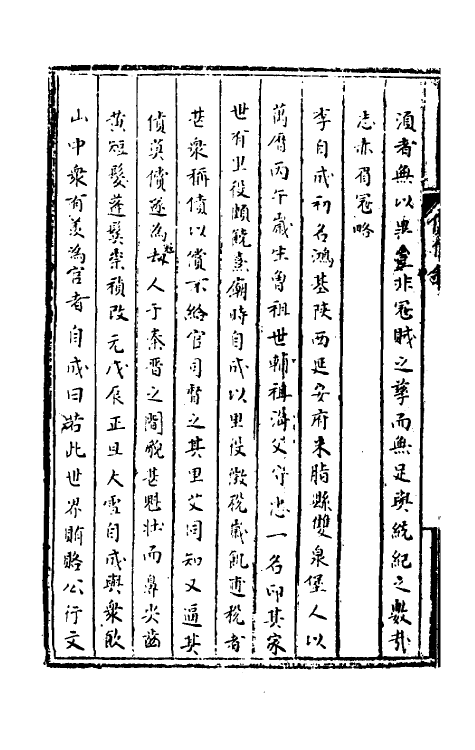 須者無以異皇非冠賊之孽而無足與統紀之數哉
志赤眉冠略
李自成初名鴻基陝西延安府米脂縣雙泉堡人以
萬曆丙午歲生曾祖世輔祖海父守忠一名印其家
世有里役頗饒熹廟時自成以里役徵稅歲飢逋稅者
甚衆稱債以償不給官司督之其里艾同知又逼其
債莫償遂為劫人于秦晉之間貌甚魁壯而鼻尖齒
黃短髮蓬鬆崇禎改元戊辰正旦大雪自成與衆飲
山中衆有羨為官者自成曰若此世界賄賂公行文